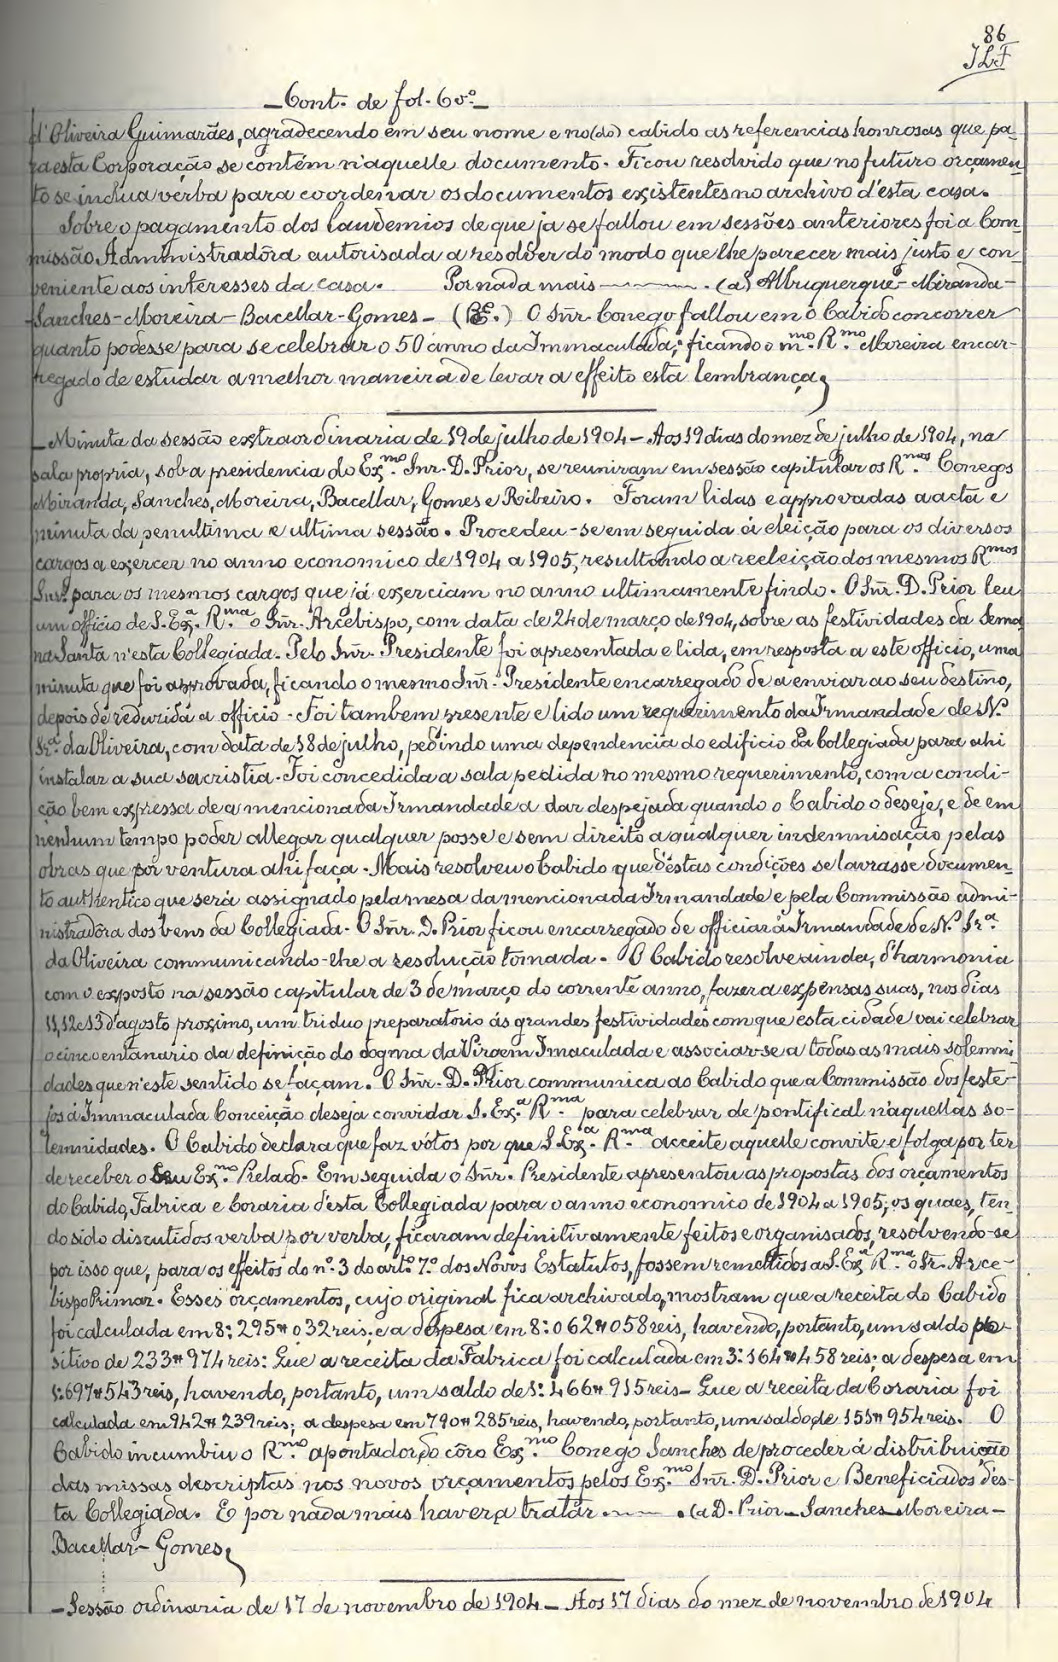 86
JLF
Cont. de fol. 60vº
d'Oliveira Guimarães, agradecendo em seu nome e no (do) cabido as referencias honrosas que pa-
ra esta Corporação se contêm n'aquelle documento. Ficou resolvido que no futuro orçamen-
to se inclua verba para coordenar os documentos existentes no archivo d'esta casa.
Sobre o pagamento dos laudemios de que ja se fallou em sessões anteriores foi a Com-
missão Administradôra autorisada a resolver do modo que lhe parecer mais justo e con-
veniente aos interesses da casa. Por nada mais ———. (a) Albuquerque - Miranda -
Sanches - Moreira - Bacellar - Gomes - O Snr. Conego fallou em o Cabido concorrer
quanto podesse para se celebrar o 50 anno da Immaculada, ficando o mº. Rmo. Moreira encar-
regado de estudar a melhor maneira de levar a effeito esta lembrança,
— Minuta da sessão extraordinaria de 19 de julho de 1904 — Aos 19 dias do mez de julho de 1904, na
sala propria, sob a presidencia do Ex.mo Snr. D. Prior, se reuniram em sessão capitular os R.mos Conegos
Miranda, Sanches, Moreira, Bacellar, Gomes e Ribeiro. Foram lidas e approvadas a acta e
minuta da penultima e ultima sessão. Procedeu-se em seguida á eleição para os diversos
cargos a exercer no anno economico de 1904 a 1905, resultando a reeleição dos mesmos R.mos
Snrs. para os mesmos cargos que já exerciam no anno ultimamente findo. O Snr. D. Prior leu
um officio de S. Ex.a R.ma o Snr. Arcebispo, com data de 24 de março de 1904, sobre as festividades da Sema-
na Santa n'esta Collegiada. Pelo Snr. Presidente foi apresentada e lida, em resposta a este officio, uma
minuta que foi approvada, ficando o mesmo Snr. Presidente encarregado de a enviar ao seu destino,
depois de reduzida a officio. Foi tambem presente e lido um requerimento da Irmandade de N.
Sr.a da Oliveira, com data de 18 de julho, pedindo uma dependencia do edificio da Collegiada para ahi
instalar a sua sacristia. Foi concedida a sala pedida no mesmo requerimento, com a condi-
ção bem expressa de a mencionada Irmandade a dar despejada quando o Cabido o deseje, e de em
nenhum tempo poder allegar qualquer posse e sem direito a qualquer indemnisação pelas
obras que por ventura ahi faça. Mais resolveu o Cabido que d'estas condições se lavrasse documen-
to authentico que será assignado pela mesa da mencionada Irmandade e pela Commissão admi-
nistradôra dos bens da Collegiada. O Snr. D. Prior ficou encarregado de officiar á Irmandade de N. Sr.a
da Oliveira communicando-lhe a resolução tomada. O Cabido resolve ainda, d'harmonia
com o exposto na sessão capitular de 3 de março do corrente anno, fazer a expensas suas, nos dias
11, 12 e 13 d'agosto proximo, um triduo preparatorio ás grandes festividades com que esta cidade vai celebrar
o cincoentanario da definição do dogma da Virgem Imaculada e associar-se a todas as mais solemni-
dades que n'este sentido se façam. O Snr. D. Prior communica ao Cabido que a Commissão dos feste-
jos á Immaculada Conceição deseja convidar S. Ex.a R.ma para celebrar de pontifical n'aquellas so-
lemnidades. O Cabido declara que faz vótos por que S. Ex.a R.ma acceite aquelle convite e folga por ter
de receber o Seu Ex.mo Prelado. Em seguida o Snr. Presidente apresentou as propostas dos orçamentos
do Cabido, Fabrica e Coraria d'esta Collegiada para o anno economico de 1904 a 1905, os quaes, ten-
do sido discutidos verba por verba, ficaram definitivamente feitos e organisados, resolvendo-se
por isso que, para os effeitos do nº. 3 do artº. 7º. dos Nóvos Estatutos, fossem remettidos a S. Ex.a R.ma o Sr. Arce-
bispo Primaz. Esses orçamentos, cujo original fica archivado, mostram que a receita do Cabido
foi calculada em 8:295#032 reis; e a despesa em 8:062#058 reis, havendo, portanto, um saldo po-
sitivo de 233#974 reis: Que a receita da Fabrica foi calculada em 3:164#458 reis; a despesa em
1:697#543 reis, havendo, portanto, um saldo de 1:466#915 reis - Que a receita da Coraria foi
calculada em 942#239 reis; a despesa em 790#285 reis, havendo, portanto, um saldo de 151#954 reis. O
Cabido incumbiu o R.mo apontador do côro Ex.mo Conego Sanches de proceder á distribuição
das missas descriptas nos novos orçamentos pelos Ex.mo Snr. D. Prior e Beneficiados d'es-
ta Collegiada. E por nada mais haver a tratar ——. (a D. Prior - Sanches - Moreira -
Bacellar - Gomes,
— Sessão ordinaria de 17 de novembro de 1904 — Aos 17 dias do mez de novembro de 1904